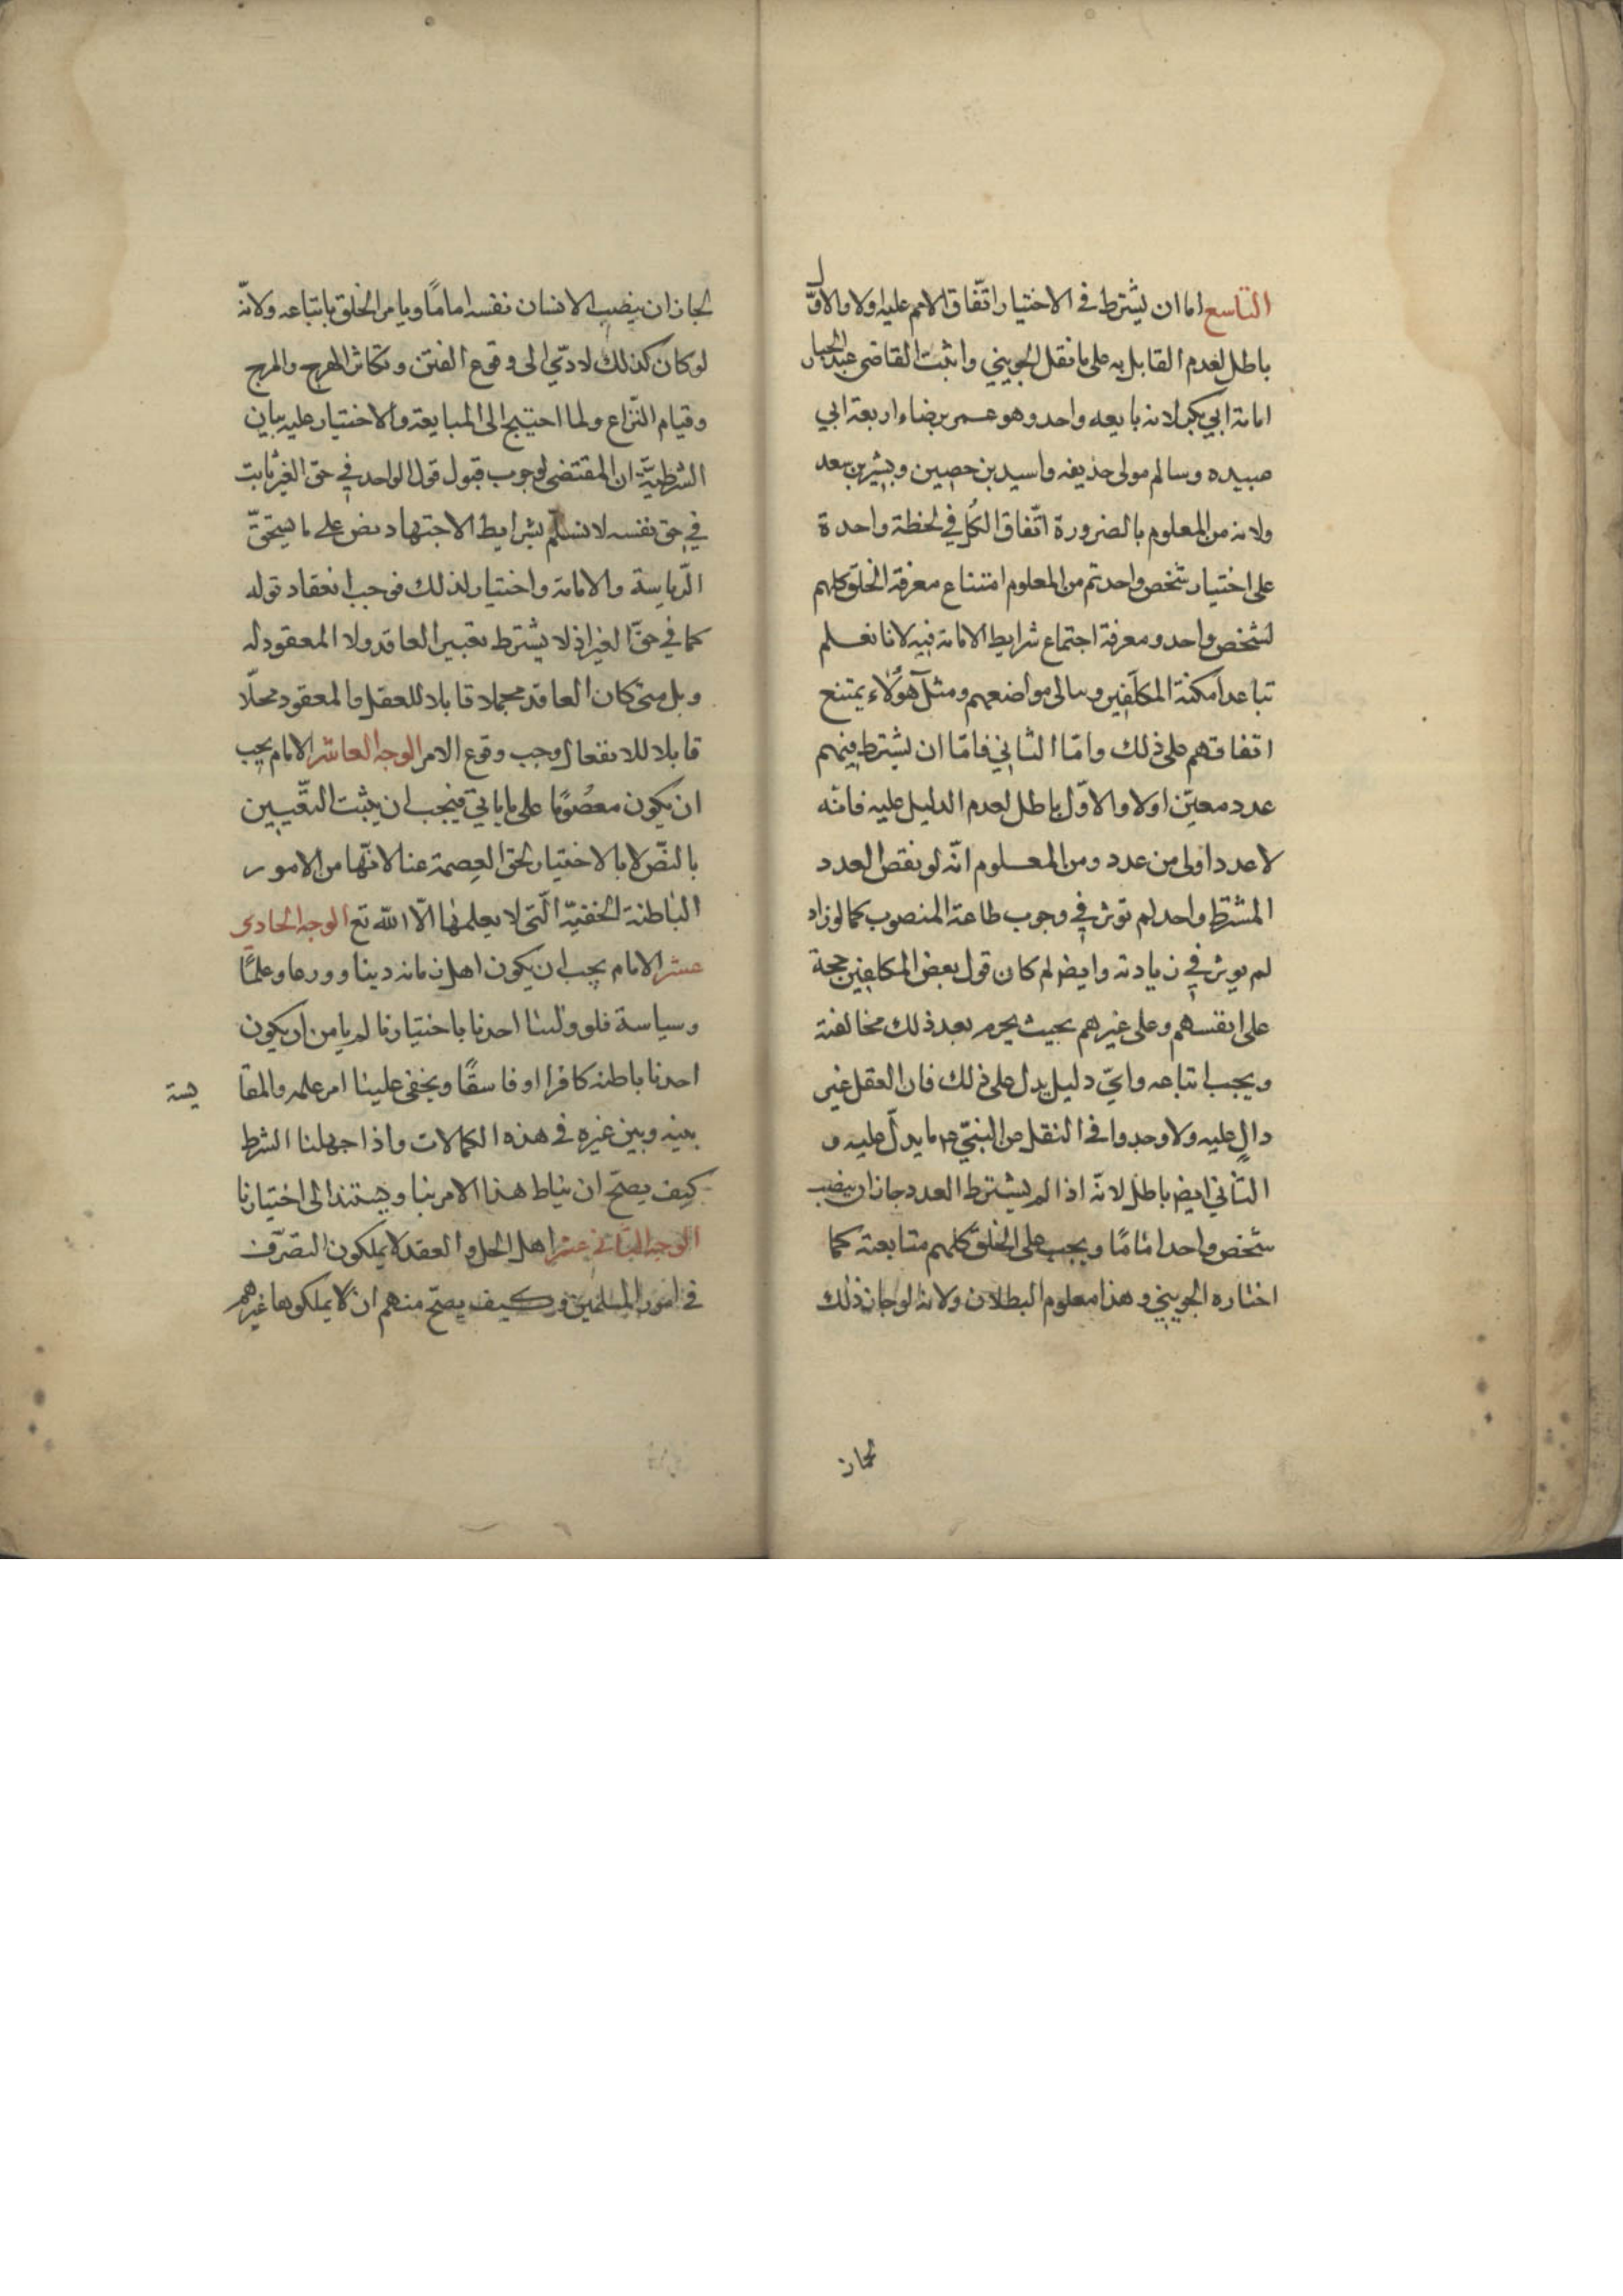 التاسع اما ان يشترط فى الاختيار اتّفاق الامم عليه اولا والاوّل
باطل لعدم القايل به على ما نقل الجويني واثبت القاضى عبد الجبار
امامة ابي بكر لانه بايعه واحد وهو عمر برضاء اربعة ابي
عبيده وسالم مولى حذيفه واسيد بن حصين وبشير بن سعد
ولانه من المعلوم بالضرورة اتّفاق الكُل في لحظة واحدة
على اختيار شخص واحد ثم من المعلوم امتناع معرفة الخلق كلهم
لشخص واحد ومعرفة اجتماع شرايط الامامة فيه لانا نعلم
تباعد امكنة المكلّفين و مواضعهم ومثل هؤلاء يمتنع
اتفاقهم على ذلك وامّا الثاني فامّا ان يشترط فيهم
عدد معيّن اولا والاوّل باطل لعدم الدليل عليه فانّه
لا عدد اولى من عدد ومن المعلوم انّه لو نقص العدد
المشترط واحد لم توثر في وجوب طاعة المنصوب كما لو زاد
لم يوثر في زيادته وايض لم كان قول بعض المكلفين حجة
على انفسهم وعلى غيرهم بحيث يحرم بعد ذلك مخالفته
ويجب اتباعه وايّ دليل يدل على ذلك فان العقل غير
دالٍ عليه ولا وجدوا فى النقل عن النبيّ ص ما يدلّ عليه و
الثّاني ايض باطل لانّه اذا لم يشترط العدد جاز ان ينصب
شخص واحد امامًا ويجب على الخلق كلهم متابعته كما
اختاره الجويني وهذا معلوم البطلان ولانه لو جاز ذلك
لجاز
لجاز ان ينصب الانسان نفسه امامًا ويامر الخلق باتباعه ولانّه
لو كان كذلك لادّي الى وقوع الفتن وتكاثر الهرج والمرج
وقيام النّزاع ولما احتيج الى المبايعة والاختيار عليه بيان
الشرطيّة ان المقتضى لوجوب قبول قول الواحد في حق الغير ثابت
في حق نفسه لانسلّم بشرايط الاجتهاد ونص على ما يستحقّ
الرّياسة والامامة واختيار لذلك فوجب انعقاد قوله
كما في حقّ الغير اذ لا يشترط تغيير العاقد ولا المعقود له
وبل متى كان العاقد قابلا للعقل والمعقود محلّا
قابلا للانفعال وجب وقوع الامر الوجه العاشر الامام يجب
ان يكون معصُومًا على ما ياتي فيجب ان يثبت التّعيين
بالنصّ لا بالاختيار لخفى العِصمة عنا لانّها من الامور
الباطنة الخفيّة الّتى لا يعلمها الّا اللّه تع الوجه الحادى
عشر الامام يجب ان يكون اهل زمانه دينا وورعا وعلمًا
وسياسة فلو ولّينا احدنا باختيارنا لم يا من ان يكون
احدنا باطنه كافرا او فاسقًا ويخفى علينا امر علمه والمقا يسة
بينه وبين غيره فى هذه الكمالات واذا جهلنا الشرط
كيف يصحّ ان يناط هذا الامر بنا ويستند الى اختيارنا
الوجه الثاني عشر اهل الحل والعقد لا يملكون التصرّف
فى امور المسلمين وكيف يصحّ منهم ان لا يملكوها غيرهم